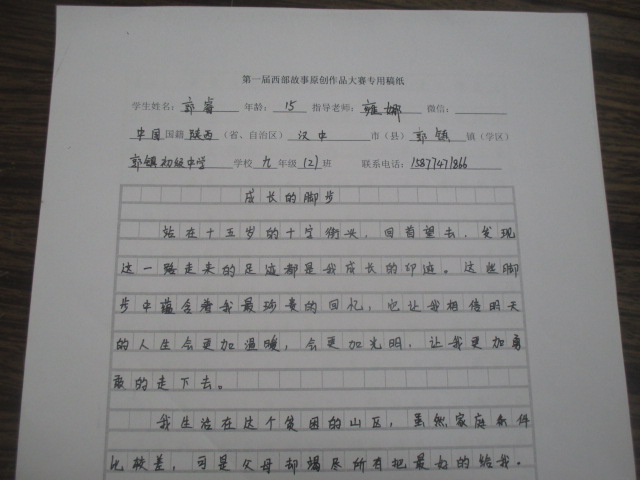 第一届西部故事原创作品大赛专用稿纸
学生姓名：郭睿 年龄：15 指导老师：雍娜 微信：
中国国籍陕西（省、自治区）汉中市（县）郭镇镇（学区）
郭镇初级中学学校九年级（2）班 联系电话：15877471866
成长的脚步
站在十五岁的十字街头，回首望去，发现
这一路走来的足迹都是我成长的印迹。这些脚
步中蕴含着我最珍贵的回忆，它让我相信明天
的人生会更加温暖，会更加光明，让我更加勇
敢的走下去。
我生活在这个贫困的山区，虽然家庭条件
比较差，可是父母却竭尽所有把最好的给我。